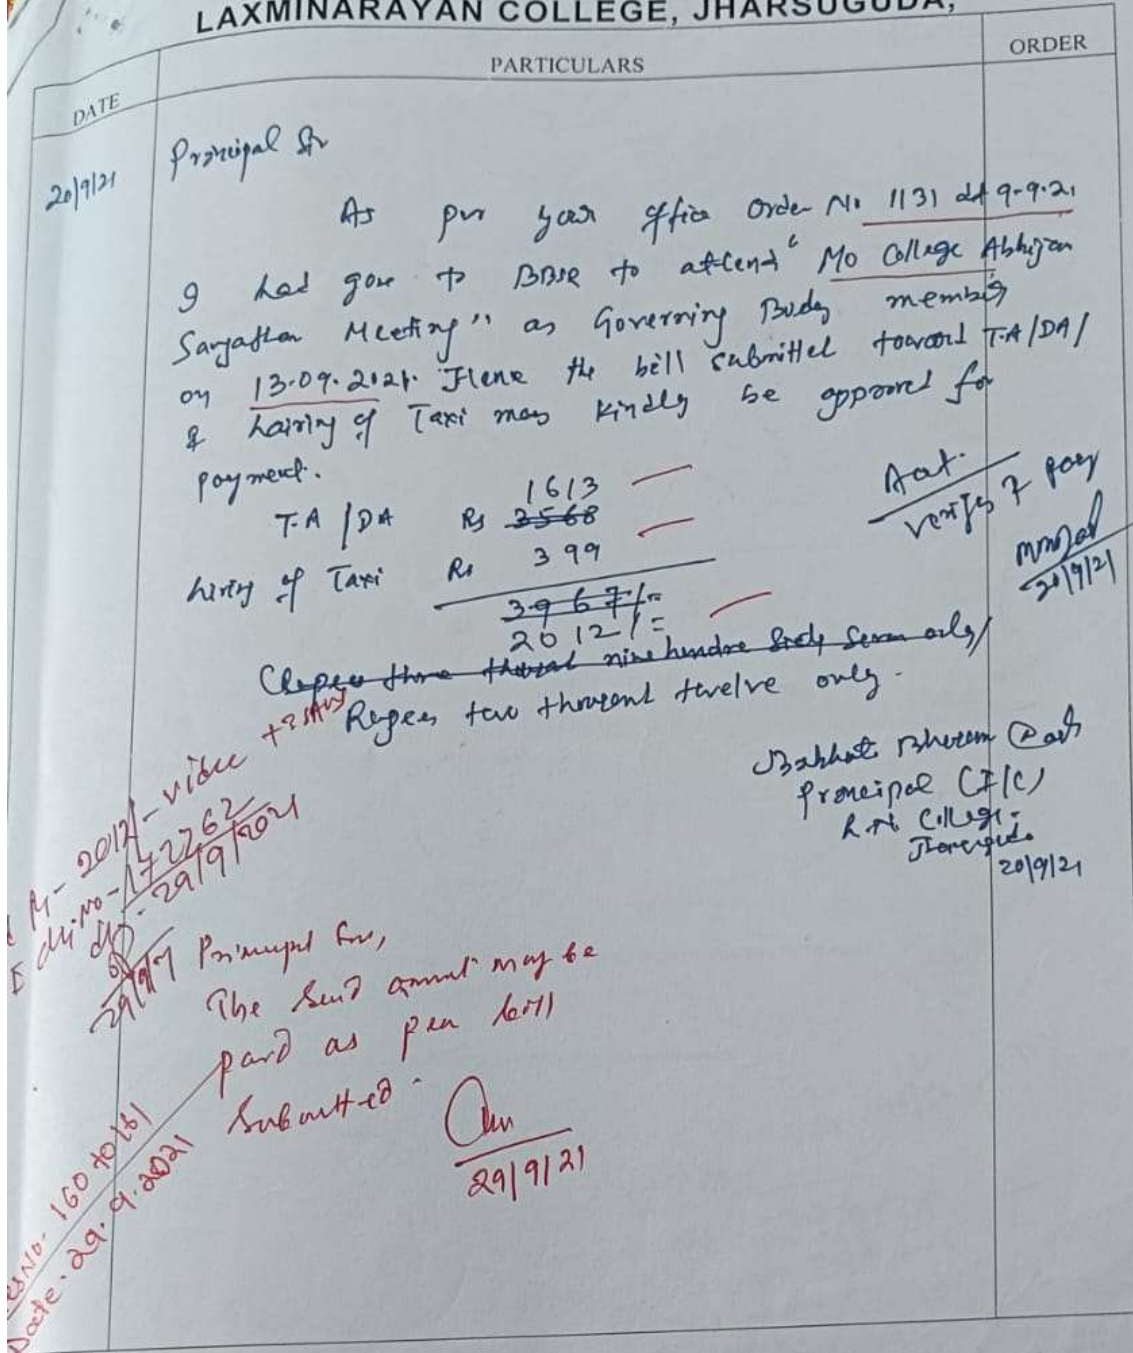 LAXMINARAYAN COLLEGE, JHARSUGUDA,
DATE
PARTICULARS
ORDER
20/9/21
Principal Sir
As per your office Order No 1131 dt 9-9-21
I had gone to BBSR to attend "Mo College Abhijan
Sangathan Meeting" as Governing Body member
on 13.09.2021. Hence the bill submitted toward T.A/DA/
& hairing of Taxi may kindly be approved for
payment.
1613
T.A /DA Rs 3568
hiring of Taxi Rs 399
3967/=
2012/=
(Rupees three thousand nine hundre Sixty Seven only/
Rupees two thousand twelve only.
Act.
verify & pay
20/9/21
Principal (I/C)
L.N. College.
Jharsuguda
20/9/21
2012/- vide
Ch. No - 172262
dt - 29/9/2021
29/9/21
Principal Sir,
The Said amount may be
paid as per bill
Submitted.
29/9/21
160 to 161
Date. 29.9.2021